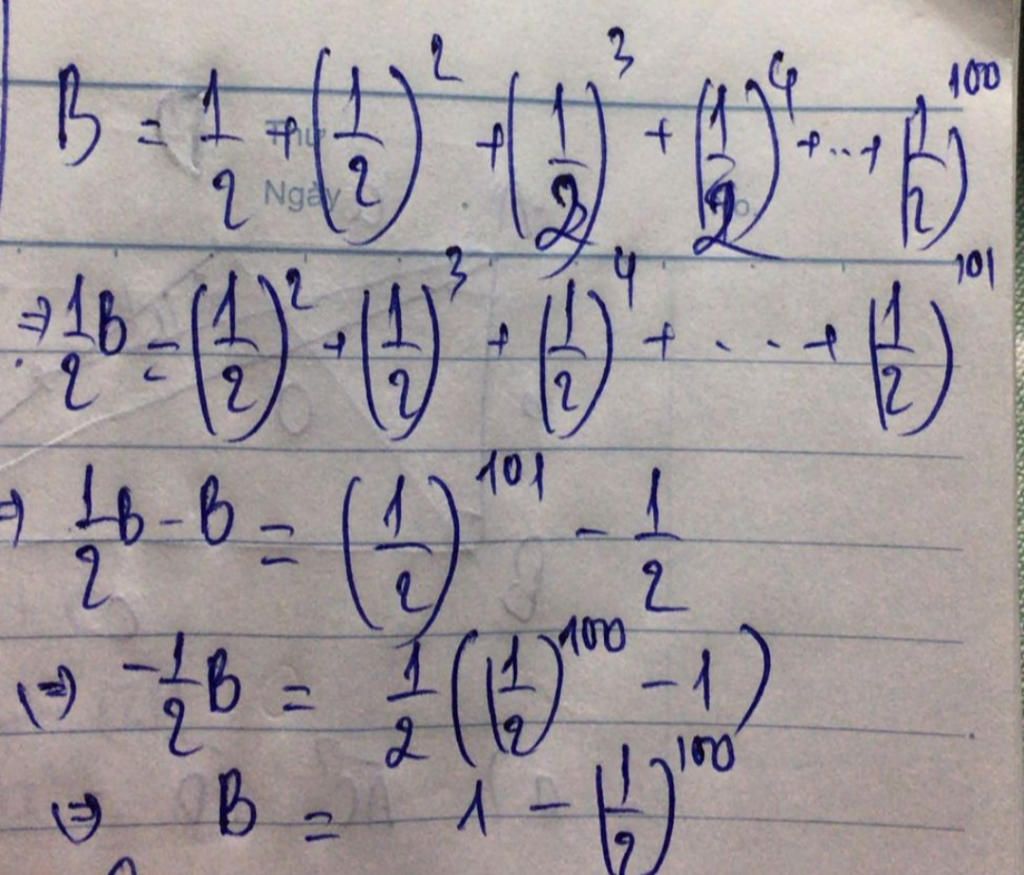 B = 1/2 + (1/2)^2 + (1/2)^3 + (1/2)^4 + ... + (1/2)^100
Thứ
Ngày
⇒ 1/2 B = (1/2)^2 + (1/2)^3 + (1/2)^4 + ... + (1/2)^101
⇒ 1/2 B - B = (1/2)^101 - 1/2
⇔ -1/2 B = 1/2 ((1/2)^100 - 1)
⇔ B = 1 - (1/2)^100